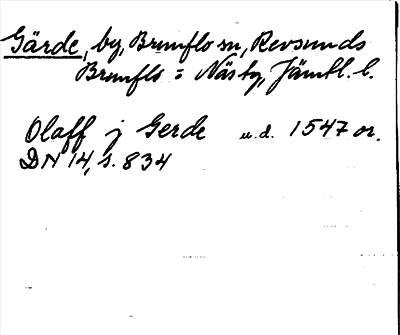 Gärde, by, Brunflo sn, Revsunds
Brunflo o Näs tg, Jämtl. l.
Olaff j Gerde u.d. 1547 or.
DN 14, s. 834